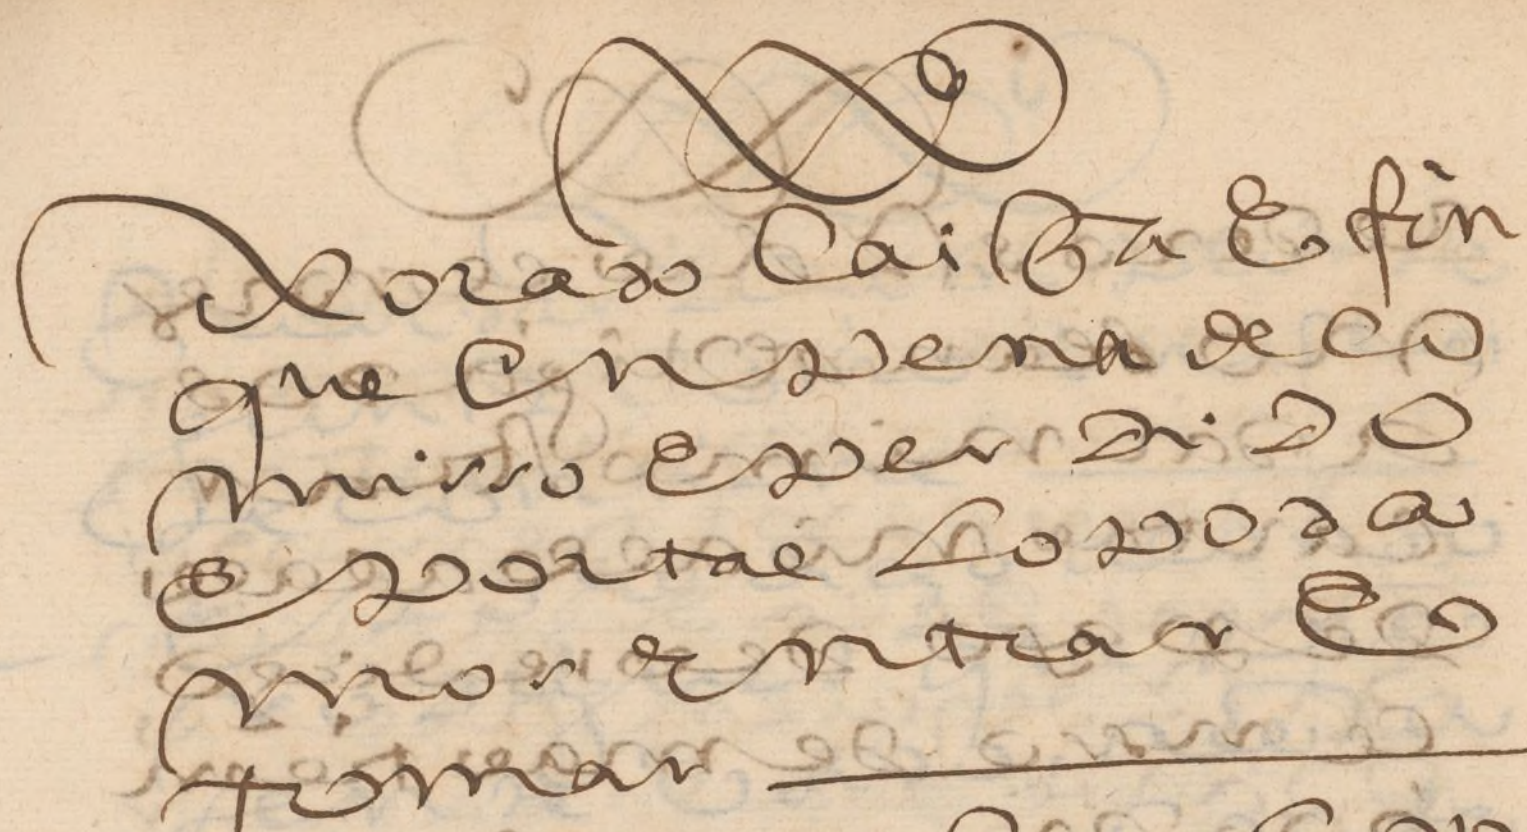 Vorado Caiga E fin
que En pena de co
misso E per di do
E por tal Lo poda
mos Entrar E
tomar